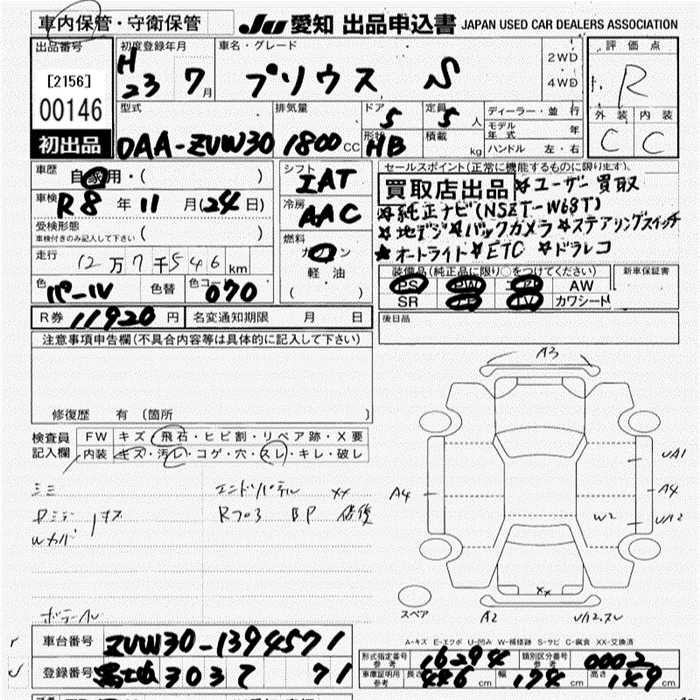 車内保管・守衛保管
JU 愛知 出品申込書 JAPAN USED CAR DEALERS ASSOCIATION
出品番号 初度登録年月 車名・グレード 評価点
[2156] H 23 7月 プリウス S 2WD 4WD R
00146 型式 排気量 ドア 定員 ディーラー・並行 外装 内装
初出品 DAA-ZVW30 1800cc 5 5人 モデル年式 年 C C
形状 HB 積載 kg ハンドル 左・右
車歴 自家用・( ) シフト IAT セールスポイント(正常に機能するものに限ります)
買取店出品 ★ユーザー買取
車検 R8年11月(24日) 冷房 AAC ★純正ナビ(NSZT-W68T)
受検形態 車検付きのみ記入して下さい ( ) ★地デジ★バックカメラ★ステアリングスイッチ
燃料 ガソリン ★オートライト★ETC★ドラレコ
走行 12万7千546km 軽油 ( )
装備品(純正品に限り○をつけてください) 新車保証書
色 パール 色替 色コード 070 PS PW AW
SR TV カワシート
R券 11920円 名変通知期限 月 日 後日品
注意事項申告欄(不具合内容等は具体的に記入して下さい)
修復歴 有 (箇所 )
検査員記入欄 FW キズ・飛石・ヒビ割・リペア跡・X要
内装 キズ・汚レ・コゲ・穴・スレ・キレ・破レ
エンドパネル XX
Rフロア BP 修復
A3
UA1
A4 A4
W2 UA2
XX
スペア A2 UA2.スレ
車台番号 ZVW30-1394571
A-キズ E-エクボ U-凹み W-補修跡 S-サビ C-腐食 XX-交換済
型式指定番号 参考 16294 類別区分番号 参考 0002
登録番号 3037 71 車庫証明用 参考 長さ 446cm 幅 174cm 高さ 149cm